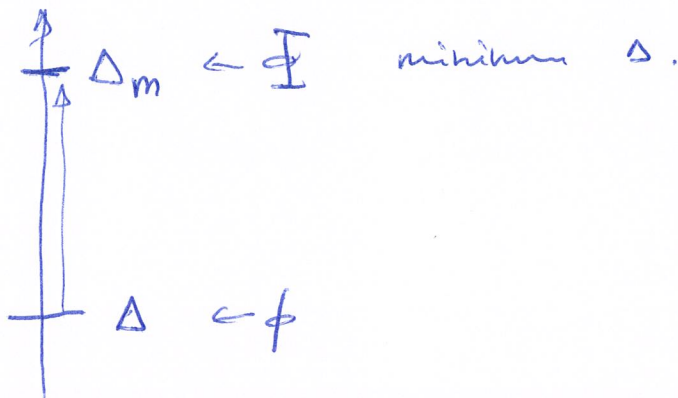 Δm ← Φ minimum Δ.
Δ ← φ